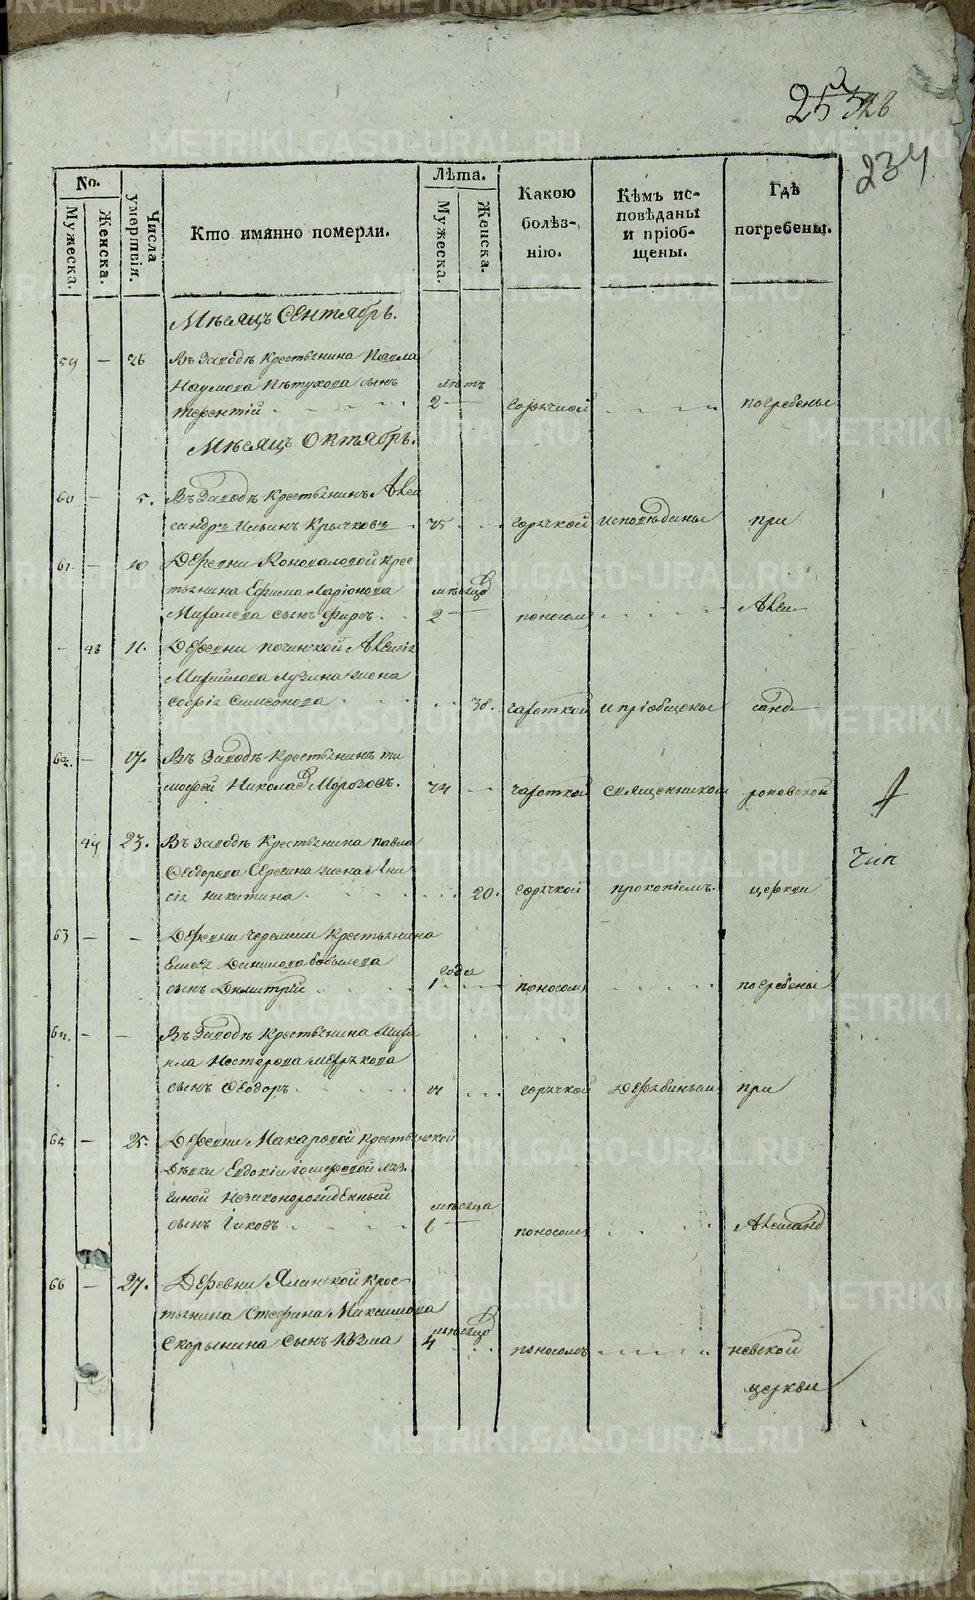 234
No.
Мужеска.
Женска.
Числа умертвія.
Кто имянно померли.
Лѣта.
Мужеска.
Женска.
Какою болѣз-нію.
Кѣмъ ис-повѣданы и пріоб-щены.
Гдѣ погребены.
Мѣсяцъ Сентябрь.
59 — 26 Въ Заводѣ Крестьянина Павла
Наумова Пѣтухова сынъ лѣтъ
терентій 2 — горячкой погребены
Мѣсяцъ Октябрь.
60 — 5. Въ Заводѣ Крестьянинъ Алек
сандръ Ильинъ Крючковъ 75 горячкой исповѣданы при
61 — 10 Деревни Коноваловой крес
тьянина Ефима Ларіонова мѣсяцовъ
сынъ 2 — поносомъ Алек
— 48 11. Деревни починской Алексія
Михайлова Лузина жена
софія Симеонова 38. чахоткой и пріобщены санд
62. — 17. Въ Заводѣ Крестьянинъ ти
мофей Николаевъ Морозовъ. 74 — чахоткой священникомъ роневской
49 23. Въ заводѣ Крестьянина павла
Ѳеодорова жена Ани
сія никитина 20. горячкой прокопіемъ. церкви
63 — — Деревни черемши Крестьянина
Данилова бобылева года
сынъ Димитрій 1 поносомъ погребены
64. — — Въ Заводѣ Крестьянина Миха
ила Нестерова
сынъ Ѳеодоръ горячкой при
65 — 25. Деревни Макаровой крестьянской
дѣвки Евдокіи іосифовой
незаконорожденный мѣсяца
сынъ іаковъ 1 поносомъ Александ
66 — 27. Деревни Ялинской крес
тьянина Стефана Максимова мѣсяцовъ
Скорынина Сынъ Козма 4 поносомъ невской
церкви
METRIKI.GASO-URAL.RU